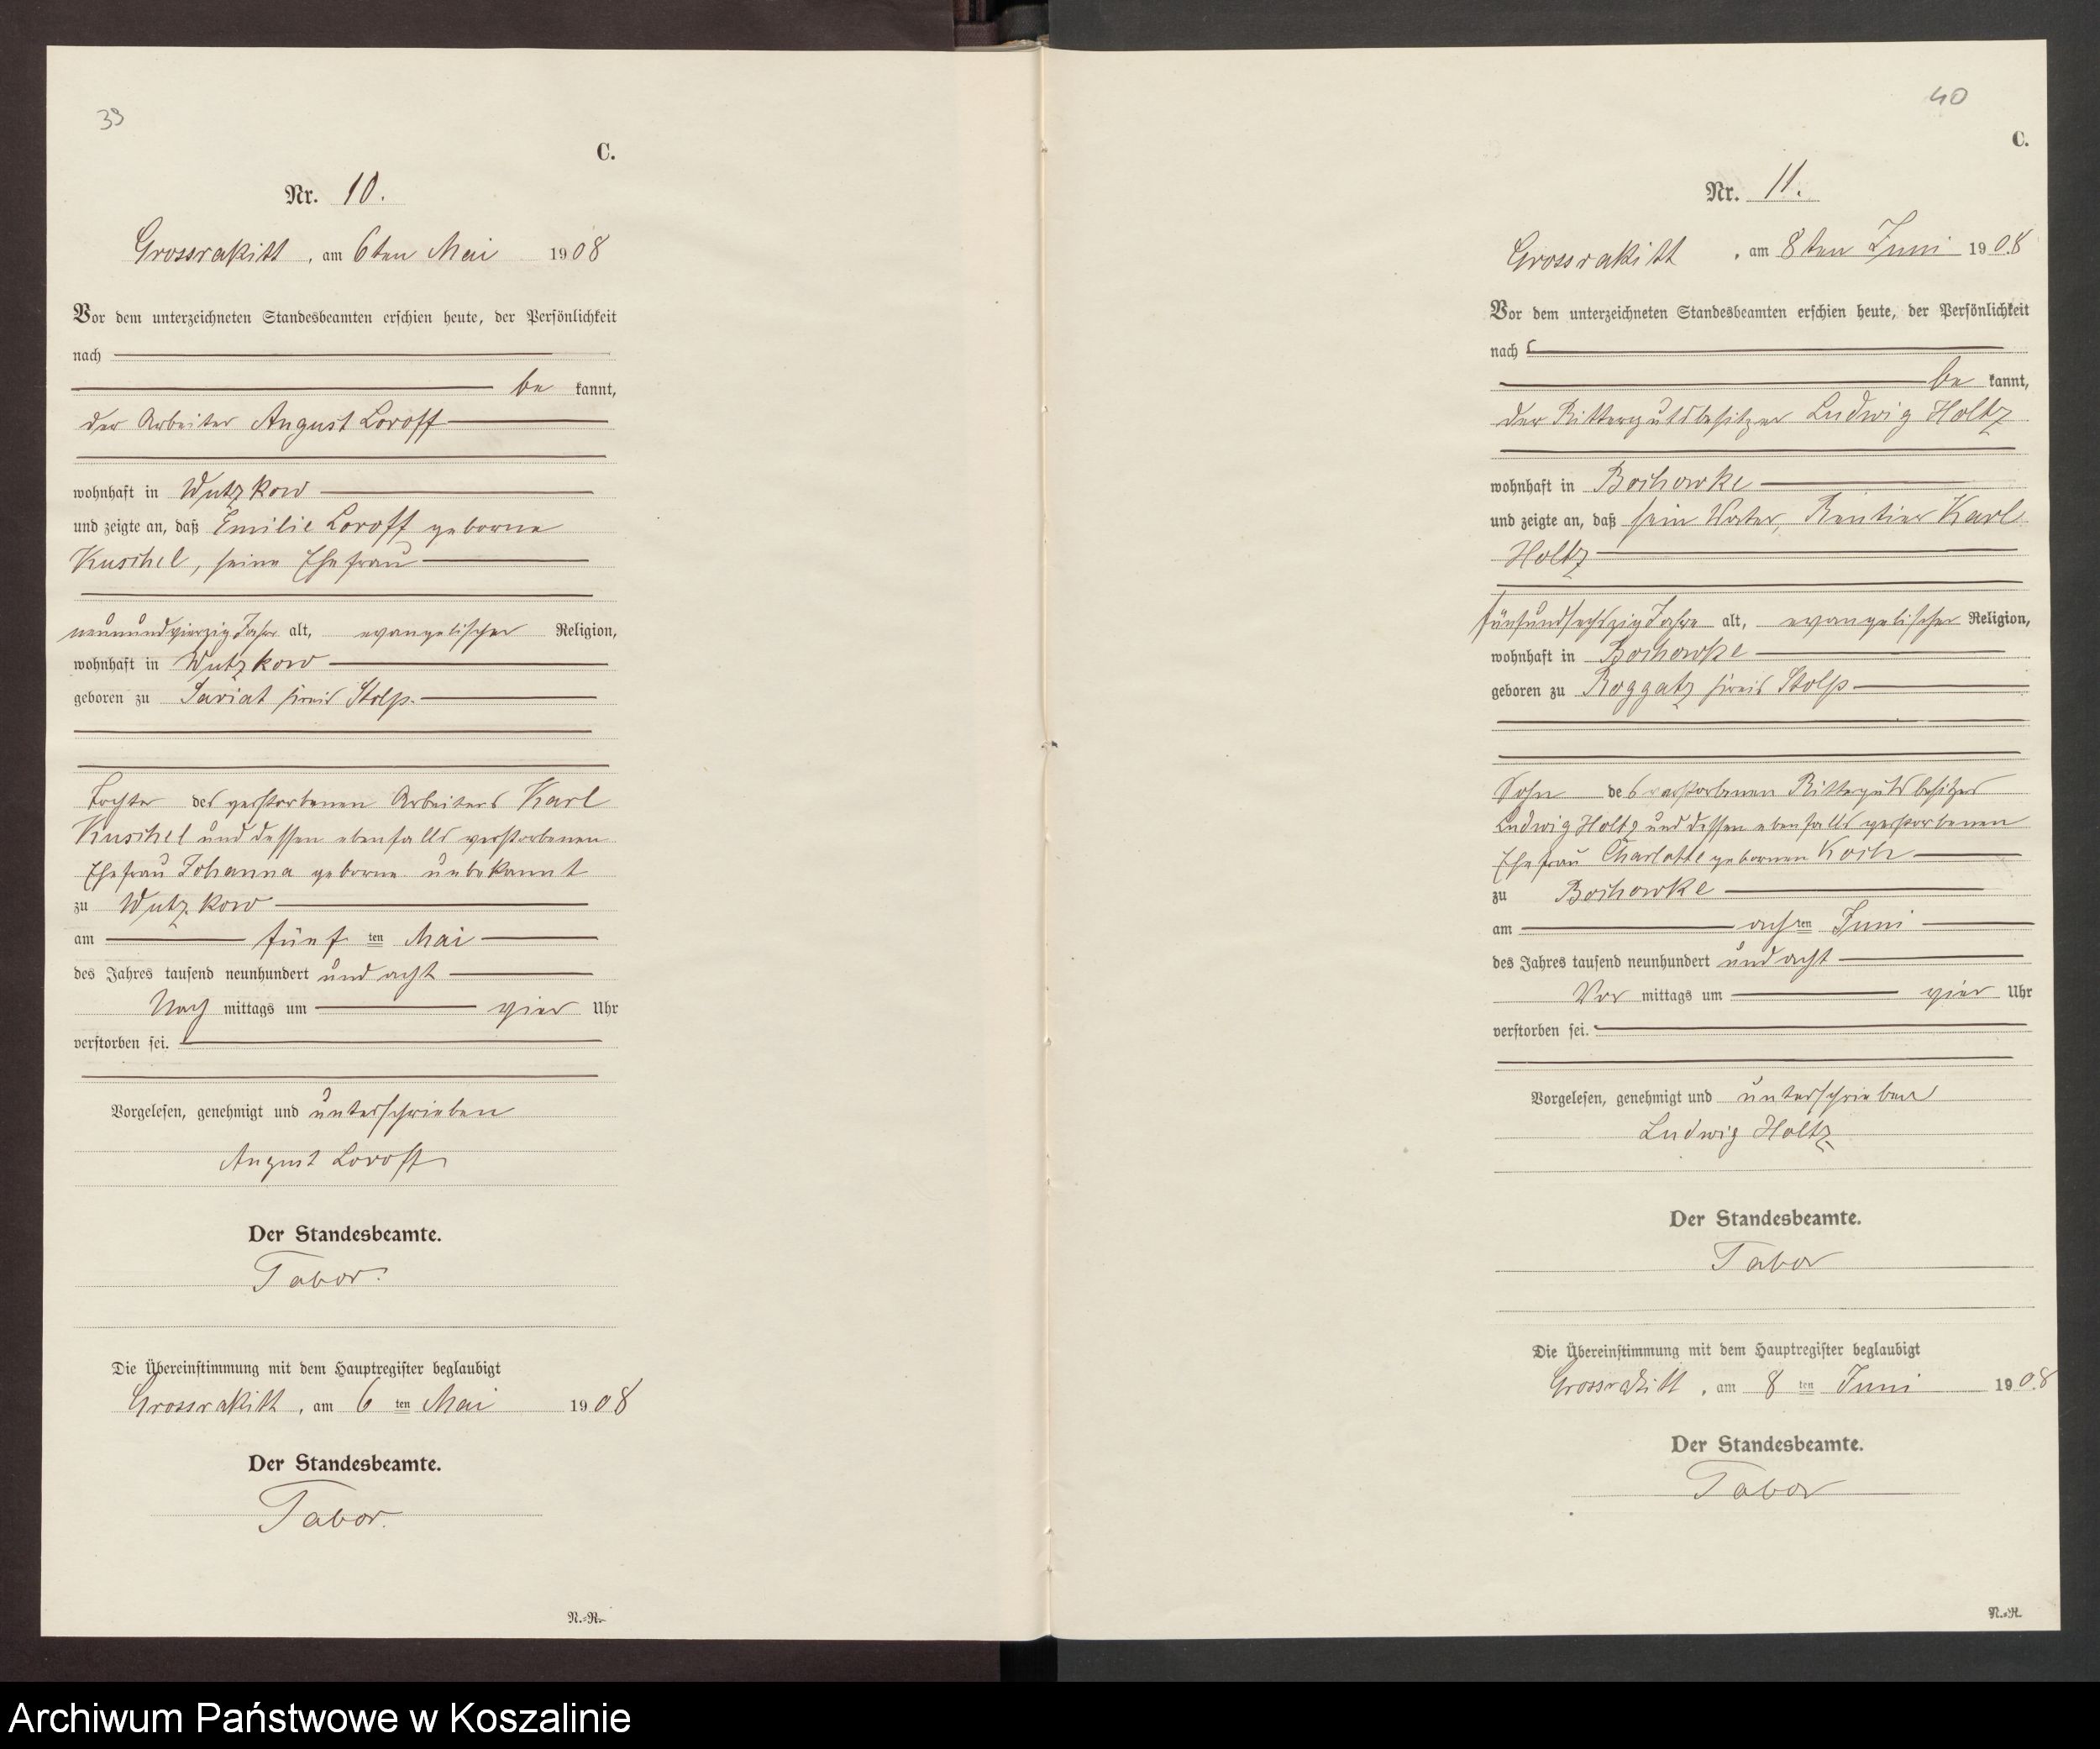 39
C.
Nr. 10.
Grossrakitt, am 6ten Mai 1908
Vor dem unterzeichneten Standesbeamten erschien heute, der Persönlichkeit
nach
be kannt,
der Arbeiter August Loroff
wohnhaft in Wutzkow
und zeigte an, daß Emilie Loroff geborne
Kuschel, seine Ehefrau
neunundvierzig Jahre alt, evangelischer Religion,
wohnhaft in Wutzkow
geboren zu Saviat Kreis Stolp.
Tochter des verstorbenen Arbeiters Karl
Kuschel und dessen ebenfalls verstorbenen
Ehefrau Johanna geborne unbekannt
zu Wutzkow
am fünften Mai
des Jahres tausend neunhundert und acht
Nach mittags um vier Uhr
verstorben sei.
Vorgelesen, genehmigt und unterschrieben
August Loroff
Der Standesbeamte.
Tabor.
Die Übereinstimmung mit dem Hauptregister beglaubigt
Grossrakitt, am 6ten Mai 1908
Der Standesbeamte.
Tabor.
N.-R.
40
C.
Nr. 11.
Grossrakitt, am 8ten Juni 1908
Vor dem unterzeichneten Standesbeamten erschien heute, der Persönlichkeit
nach
be kannt,
der Rittergutsbesitzer Ludwig Holtz
wohnhaft in Bochowke
und zeigte an, daß sein Vater, Rentier Karl
Holtz
fünfundsechszig Jahre alt, evangelischer Religion,
wohnhaft in Bochowke
geboren zu Roggatz Kreis Stolp
Sohn des verstorbenen Rittergutsbesitzer
Ludwig Holtz und dessen ebenfalls verstorbenen
Ehefrau Charlotte gebornen Koch
zu Bochowke
am achten Juni
des Jahres tausend neunhundert und acht
Vor mittags um vier Uhr
verstorben sei.
Vorgelesen, genehmigt und unterschrieben
Ludwig Holtz
Der Standesbeamte.
Tabor
Die Übereinstimmung mit dem Hauptregister beglaubigt
Grossrakitt, am 8ten Juni 1908
Der Standesbeamte.
Tabor
N.-R.
Archiwum Państwowe w Koszalinie